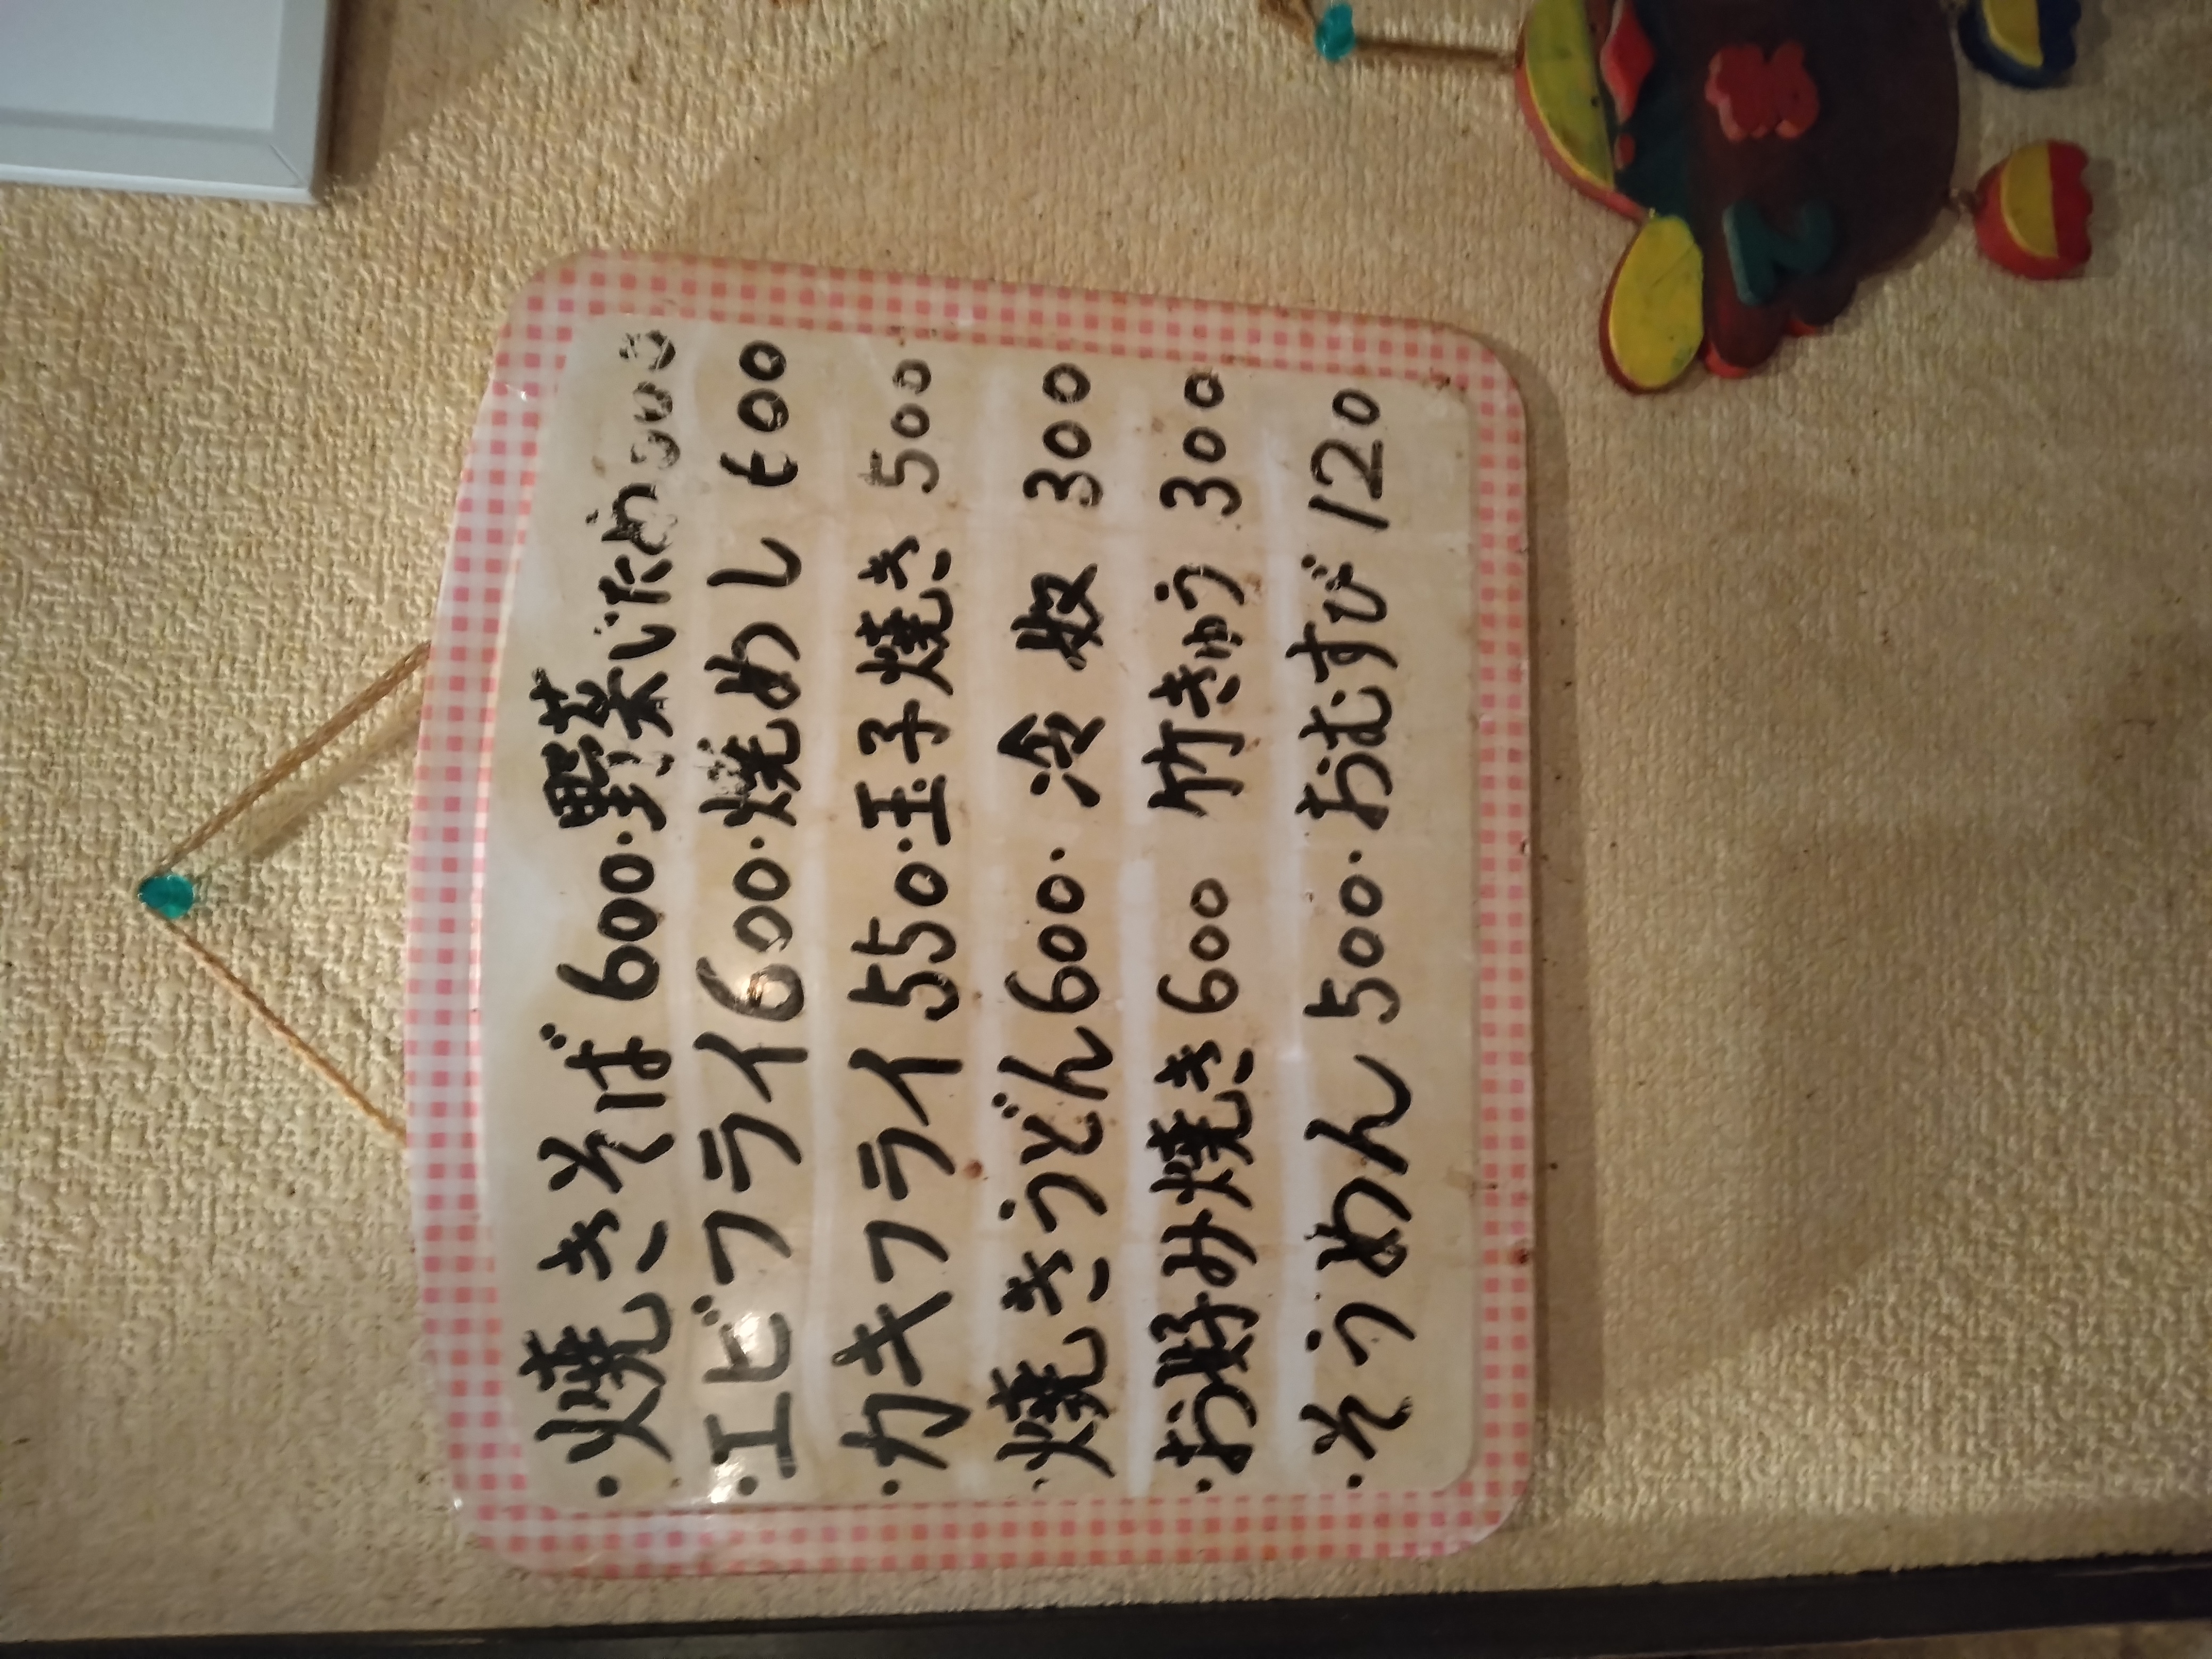 ・焼きそば 600・野菜いため 500
・エビフライ 600・焼めし 600
・カキフライ 550・玉子焼き 500
・焼きうどん 600・冷奴 300
・お好み焼き 600 竹きゅう 300
・そうめん 500・おむすび 120